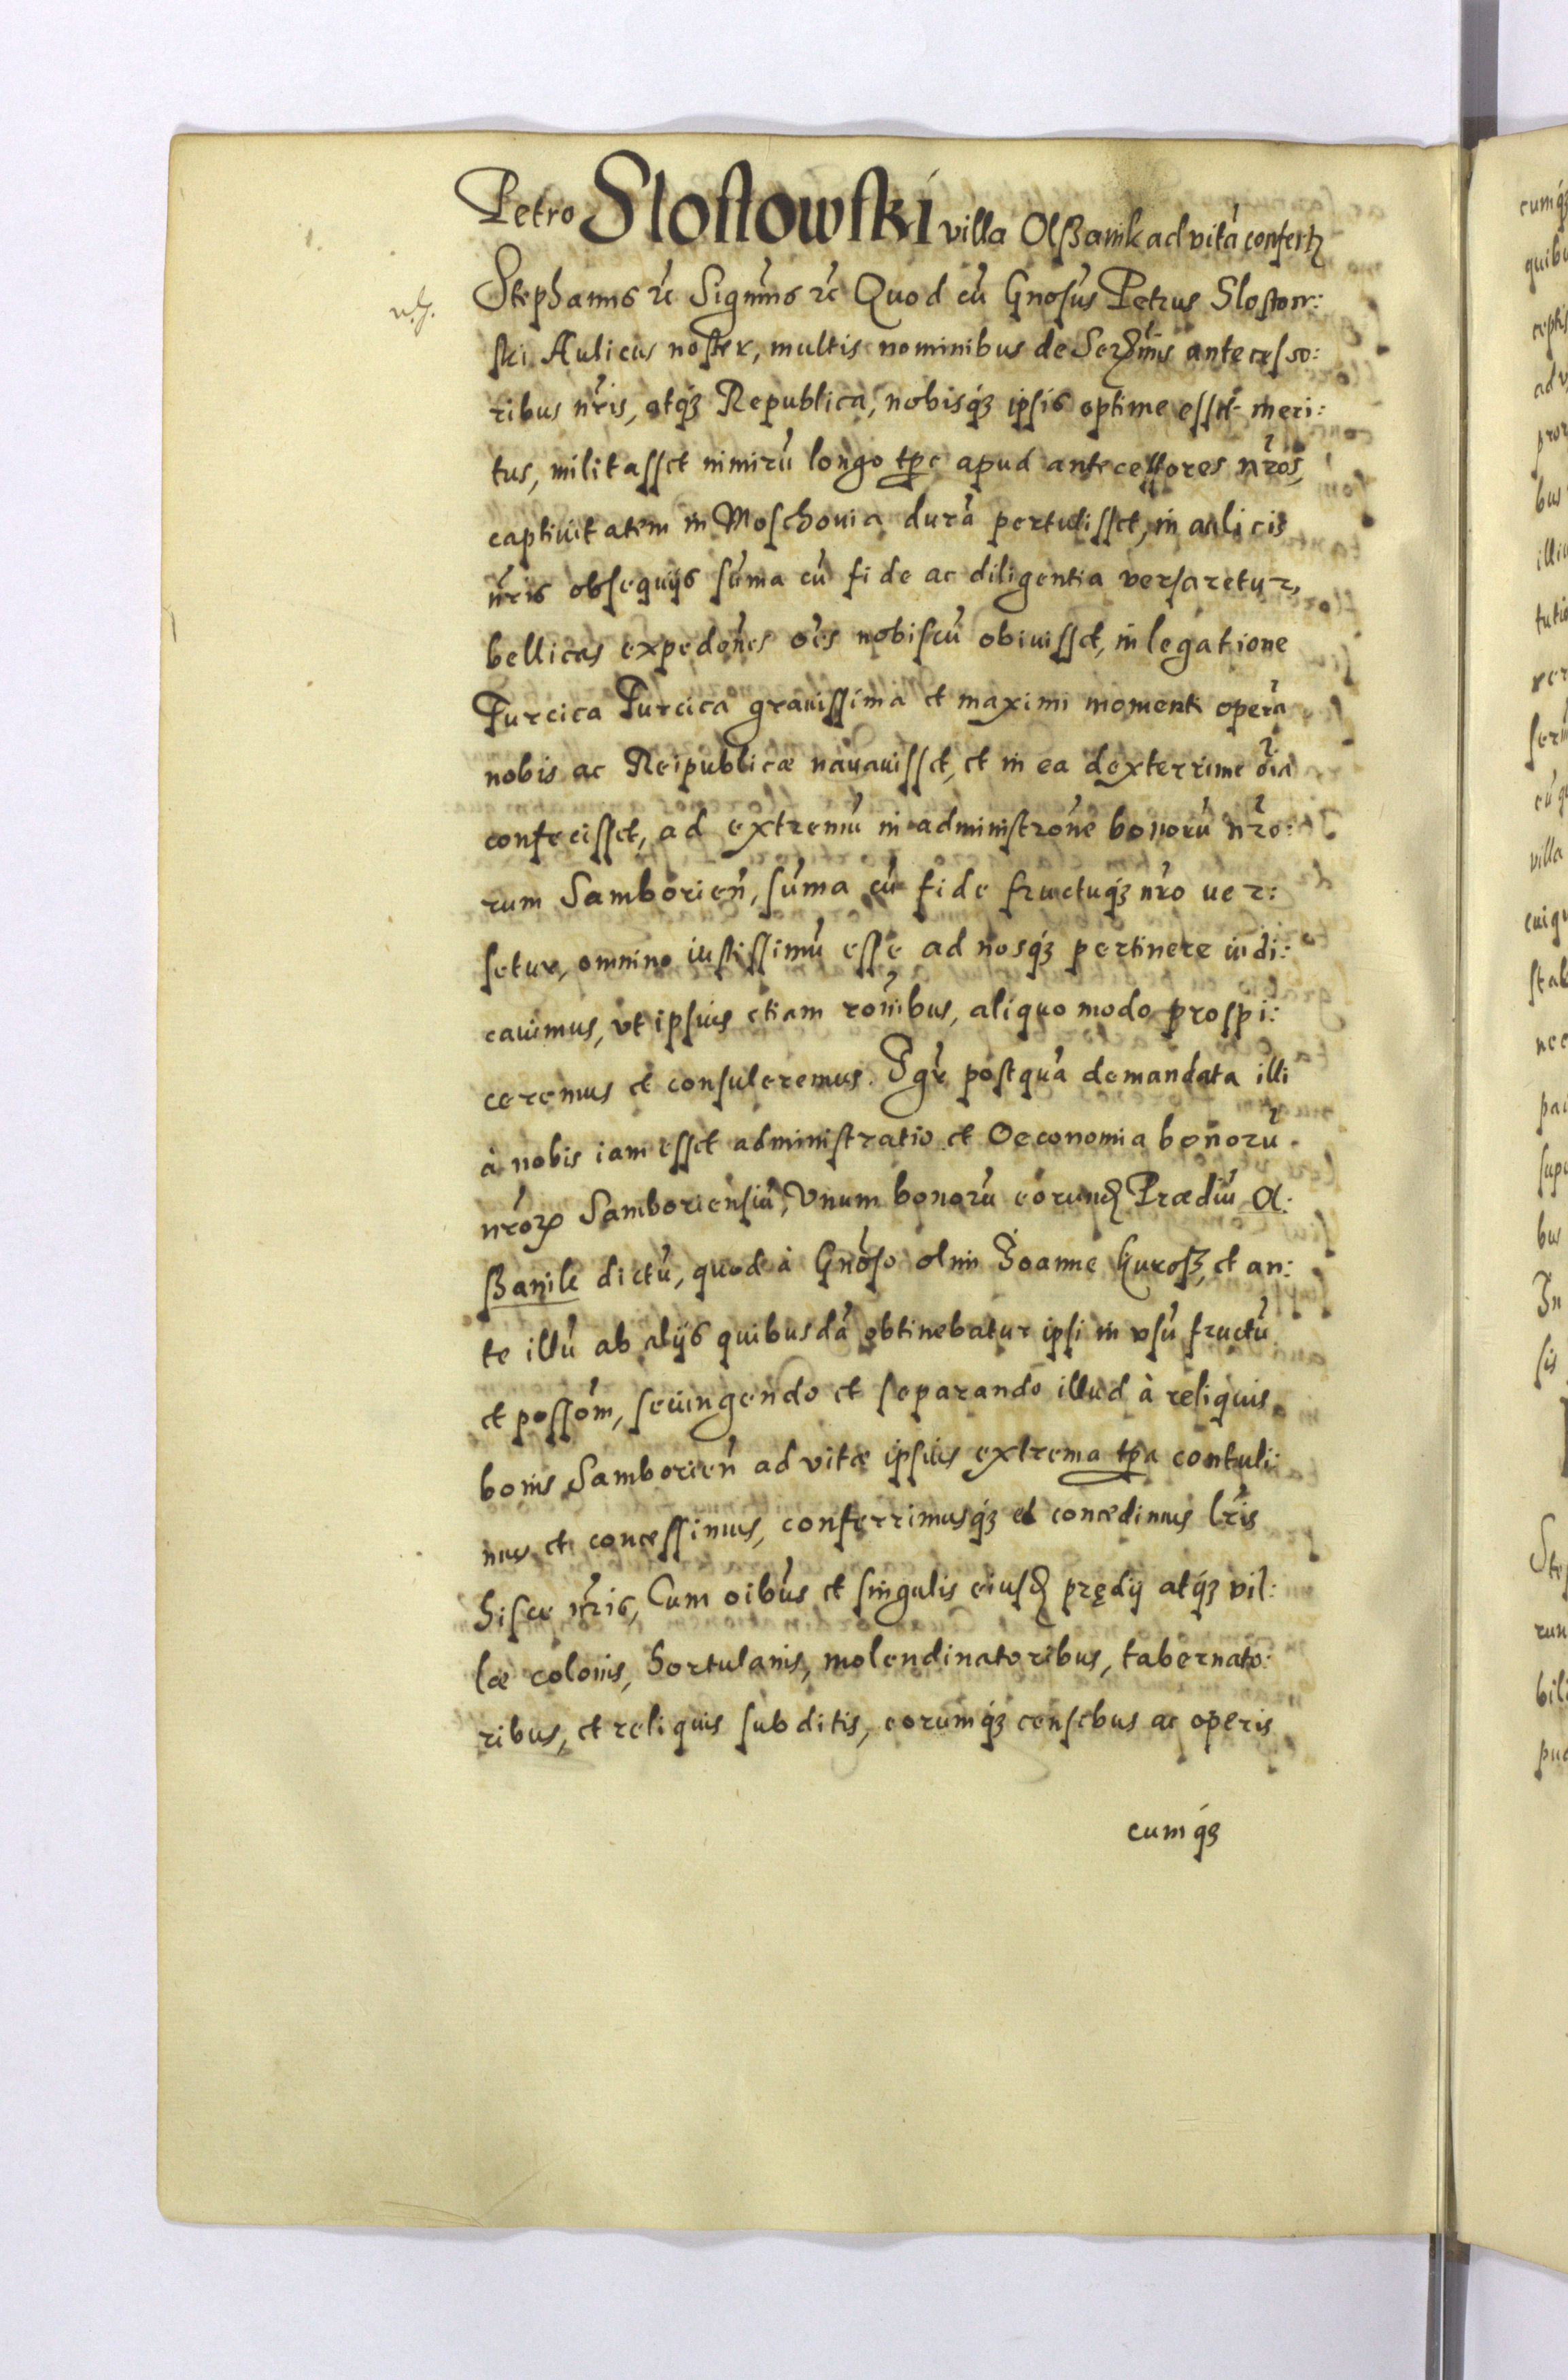 Petro Slostowski villa Olßanik ad vitã confertꝫ
Stephanus ꝛc̃ Significamus ꝛc̃ Quod cũ Gnosus Petrus Slostow:
ski Aulicus noster, multis nominibus de Serẽmis antecesso:
ribus nr̃is, atq́ꝫ Republica, nobisq́ꝫ ipsis optime esset meri:
tus, militasset nimirũ longo tp̃e apud antecessores nr̃os,
captivitatem in Moschouia durã pertulisset, in aulicis
nr̃is obsequijs sũma cũ fide ac diligentia versaretur,
bellicas expedõnes oẽs nobiscũ obiuisset, in legatione
Turcica Turcica grauissima et maximi momenti operã
nobis ac Reipublicæ nauauisset, et in ea dexterrime oĩa
confecisset, ad extremũ in administrõne bonorũ nr̃o:
rum Samborieñ, sũma cũ fide fructuq́ꝫ nr̃o uer:
setur, omnino iustissimũ esse ad nosq́ꝫ pertinere iudi:
cauimus, vt ipsius etiam rõnibus, aliquo modo prospi:
ceremus et consuleremus. Igr̃ postquã demandata illi
à nobis iam esset administratio et Oeconomia bonorũ
nr̃oꝝ Samboriensiũ, Vnum bonorũ eorund̃ Prædiũ Ol:
ßanik dictũ, quod à Gnõso olim Joanne Kuroß, et an:
te illũ ab alijs quibusdã obtinebatur ipsi in vsũ fructũ
et possõm, seiungendo et separando illud à reliquis
bonis Samborieñ ad vitæ ipsius extrema tp̃a contuli:
mus et concessimus, conferrimusq́ꝫ et concedimus lr̃is
hisce nr̃is, Cum oĩbus et singulis eiusd̃ prędij atq́ꝫ vil:
læ colonis, hortulanis, molendinatoribus, tabernato:
ribus, et reliquis subditis, eorumq́ꝫ censibus ac operis
cumq́ꝫ